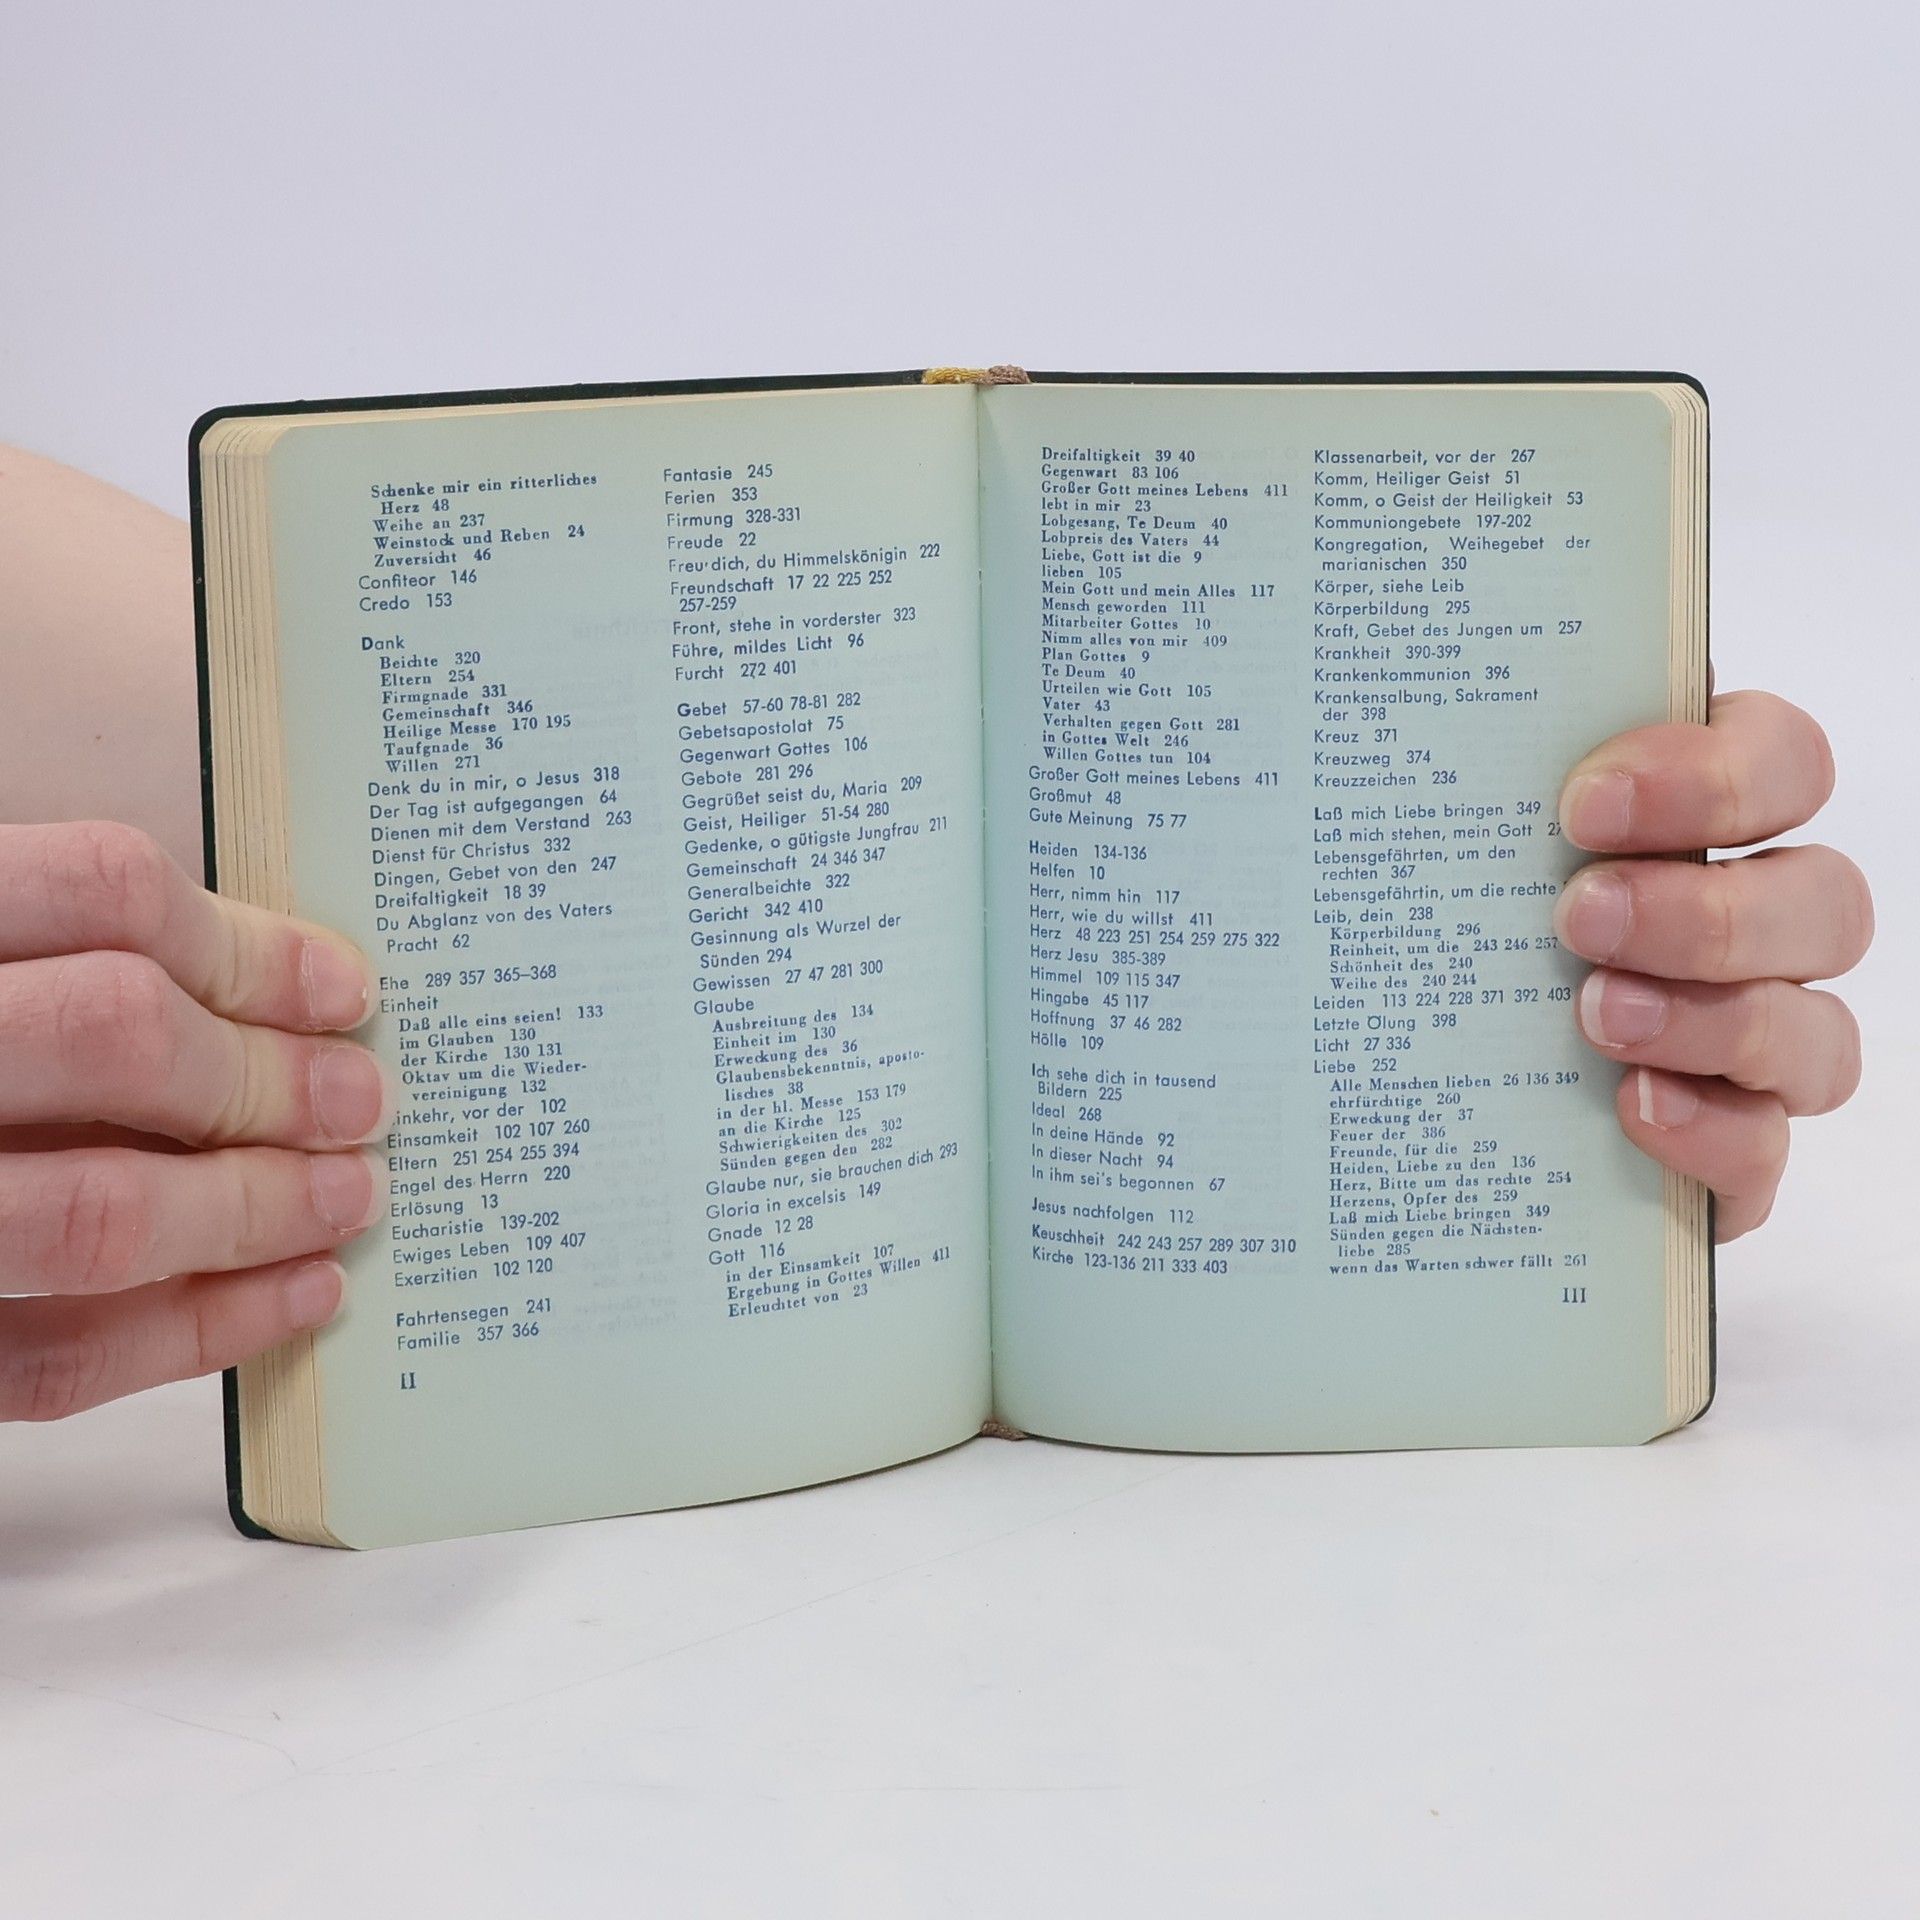 Schenke mir ein ritterliches
Herz 48
Weihe an 237
Weinstock und Reben 24
Zuversicht 46
Confiteor 146
Credo 153
Dank
Beichte 320
Eltern 254
Firmgnade 331
Gemeinschaft 346
Heilige Messe 170 195
Taufgnade 36
Willen 271
Denk du in mir, o Jesus 318
Der Tag ist aufgegangen 64
Dienen mit dem Verstand 263
Dienst für Christus 332
Dingen, Gebet von den 247
Dreifaltigkeit 18 39
Du Abglanz von des Vaters
Pracht 62
Ehe 289 357 365–368
Einheit
Daß alle eins seien! 133
im Glauben 130
der Kirche 130 131
Oktav um die Wieder-
vereinigung 132
inkehr, vor der 102
Einsamkeit 102 107 260
Eltern 251 254 255 394
Engel des Herrn 220
Erlösung 13
Eucharistie 139-202
Ewiges Leben 109 407
Exerzitien 102 120
Fahrtensegen 241
Familie 357 366
II
Fantasie 245
Ferien 353
Firmung 328-331
Freude 22
Freu' dich, du Himmelskönigin 222
Freundschaft 17 22 225 252
257-259
Front, stehe in vorderster 323
Führe, mildes Licht 96
Furcht 272 401
Gebet 57-60 78-81 282
Gebetsapostolat 75
Gegenwart Gottes 106
Gebote 281 296
Gegrüßet seist du, Maria 209
Geist, Heiliger 51-54 280
Gedenke, o gütigste Jungfrau 211
Gemeinschaft 24 346 347
Generalbeichte 322
Gericht 342 410
Gesinnung als Wurzel der
Sünden 294
Gewissen 27 47 281 300
Glaube
Ausbreitung des 134
Einheit im 130
Erweckung des 36
Glaubensbekenntnis, aposto-
lisches 38
in der hl. Messe 153 179
an die Kirche 125
Schwierigkeiten des 302
Sünden gegen den 282
Glaube nur, sie brauchen dich 293
Gloria in excelsis 149
Gnade 12 28
Gott 116
in der Einsamkeit 107
Ergebung in Gottes Willen 411
Erleuchtet von 23
Dreifaltigkeit 39 40
Gegenwart 83 106
Großer Gott meines Lebens 411
lebt in mir 23
Lobgesang, Te Deum 40
Lobpreis des Vaters 44
Liebe, Gott ist die 9
lieben 105
Mein Gott und mein Alles 117
Mensch geworden 111
Mitarbeiter Gottes 10
Nimm alles von mir 409
Plan Gottes 9
Te Deum 40
Urteilen wie Gott 105
Vater 43
Verhalten gegen Gott 281
in Gottes Welt 246
Willen Gottes tun 104
Großer Gott meines Lebens 411
Großmut 48
Gute Meinung 75 77
Heiden 134-136
Helfen 10
Herr, nimm hin 117
Herr, wie du willst 411
Herz 48 223 251 254 259 275 322
Herz Jesu 385-389
Himmel 109 115 347
Hingabe 45 117
Hoffnung 37 46 282
Hölle 109
Ich sehe dich in tausend
Bildern 225
Ideal 268
In deine Hände 92
In dieser Nacht 94
In ihm sei's begonnen 67
Jesus nachfolgen 112
Keuschheit 242 243 257 289 307 310
Kirche 123-136 211 333 403
Klassenarbeit, vor der 267
Komm, Heiliger Geist 51
Komm, o Geist der Heiligkeit 53
Kommuniongebete 197-202
Kongregation, Weihegebet der
marianischen 350
Körper, siehe Leib
Körperbildung 295
Kraft, Gebet des Jungen um 257
Krankheit 390-399
Krankenkommunion 396
Krankensalbung, Sakrament
der 398
Kreuz 371
Kreuzweg 374
Kreuzzeichen 236
Laß mich Liebe bringen 349
Laß mich stehen, mein Gott
Lebensgefährten, um den
rechten 367
Lebensgefährtin, um die rechte
Leib, dein 238
Körperbildung 296
Reinheit, um die 243 246 257
Schönheit des 240
Weihe des 240 244
Leiden 113 224 228 371 392 403
Letzte Ölung 398
Licht 27 336
Liebe 252
Alle Menschen lieben 26 136 349
ehrfürchtige 260
Erweckung der 37
Feuer der 386
Freunde, für die 259
Heiden, Liebe zu den 136
Herz, Bitte um das rechte 254
Herzens, Opfer des 259
Laß mich Liebe bringen 349
Sünden gegen die Nächsten-
liebe 285
wenn das Warten schwer fällt 261
III